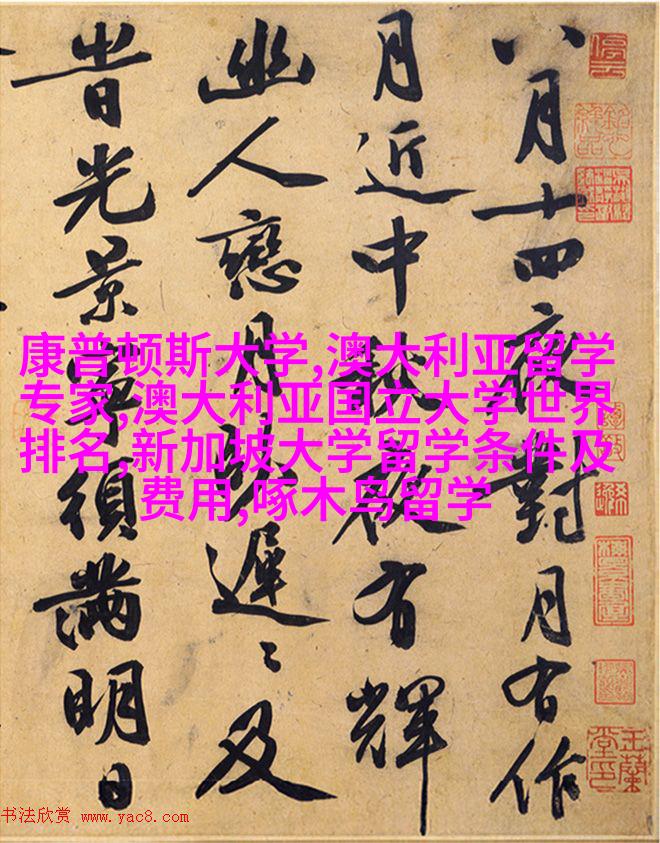 八月十四夜對月有作
月近中秋夜有輝
幽人戀月臥遲〻及
旹光景寧須滿明日
康普顿斯大学,澳大利亚留学
专家,澳大利亚国立大学世界
排名,新加坡大学留学条件及
费用,啄木鸟留学
停云
玉蘭堂印
书法欣赏 www.yac8.com